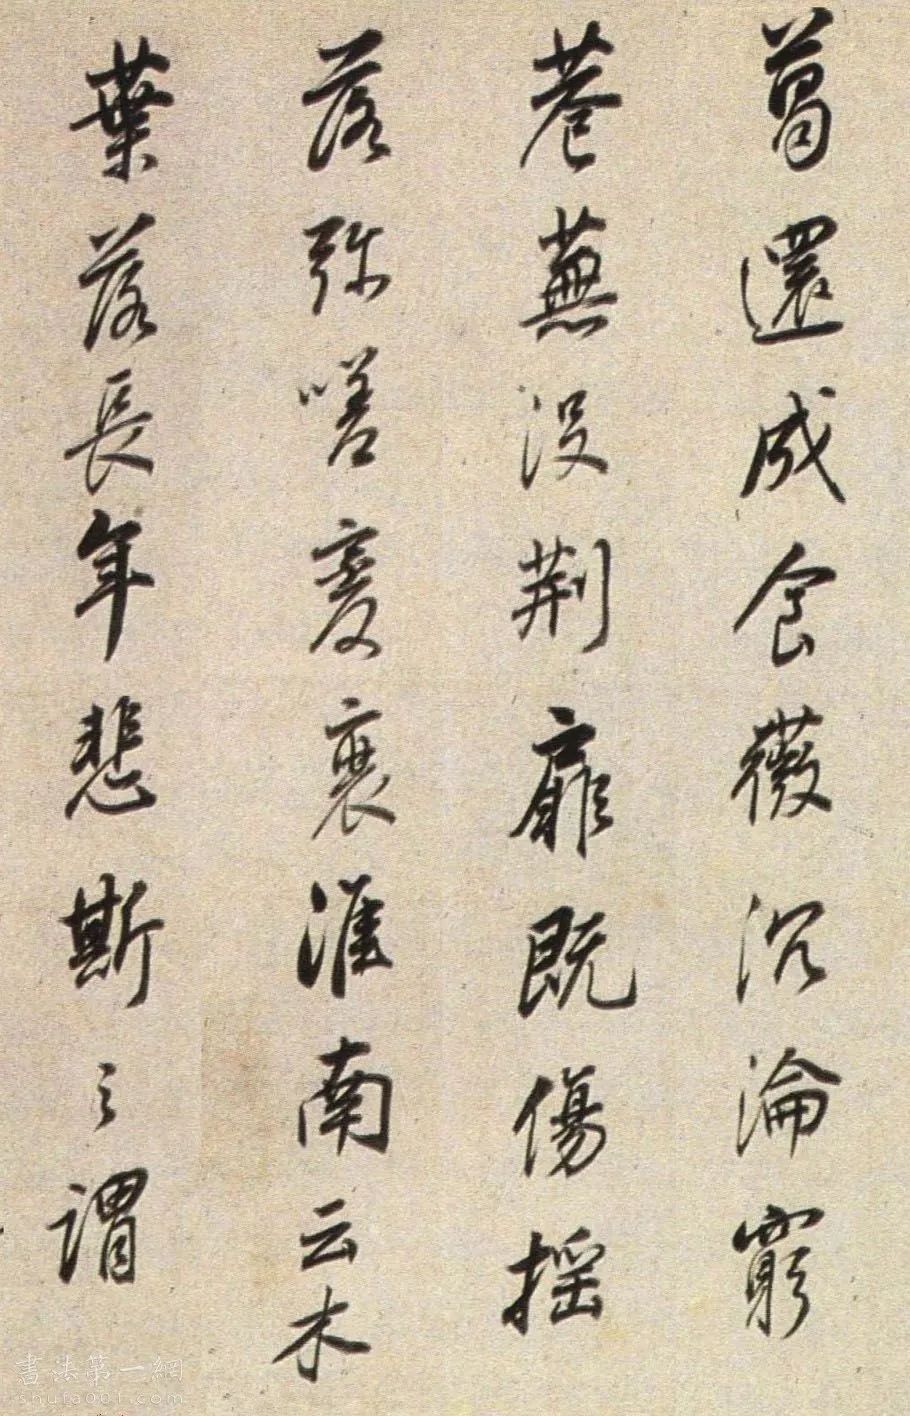 葛還成食薇沉淪窮
巷蕪没荆扉既傷摇
落弥嗟變衰淮南云木
葉落長年悲斯之謂
書法第一網
shufa001.com